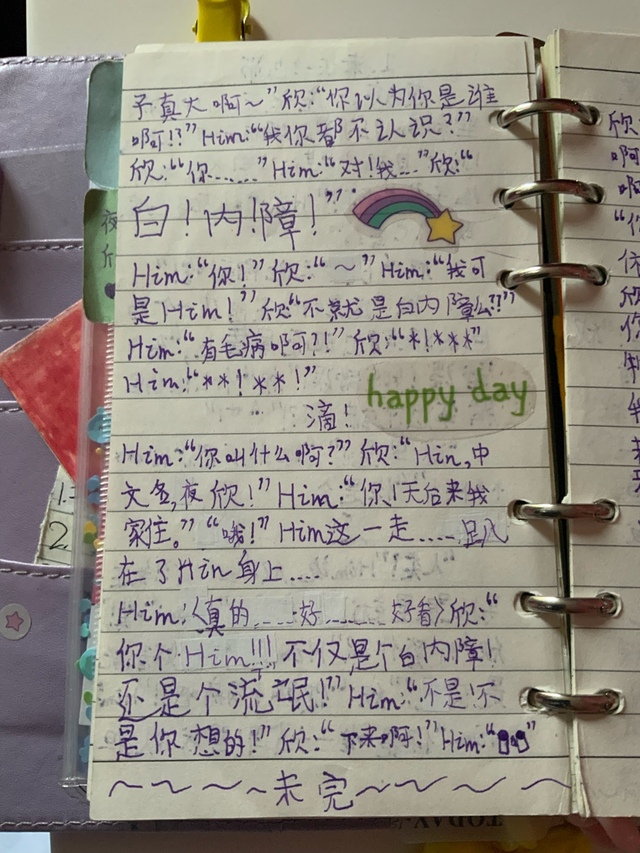 子真大啊～”欣：“你以为你是谁
啊!?”Him：“我你都不认识？”
欣：“你……”Him：“对！我…”欣：“
白！内！障！”
Him：“你！”欣：“～”Him：“我可
是Him！”欣“不就是白内障么?!”
Him：“有毛病啊?!”欣：“*！***”
Him：“**！**！”
滴！
happy day
Him：“你叫什么啊？”欣：“Hin,中
文名,夜欣！”Him：“你,1天后来我
家住。”“哦！”Him这一走……趴
在了Hin身上……
Him：〈真的……好……好看〉欣：“
你个Him!!!不仅是个白内障！
还是个流氓！”Him：“不是！不
是你想的！”欣：“下来啊！”Him：“
～～～～未完～～～～
夜
TODAY
1.
2.